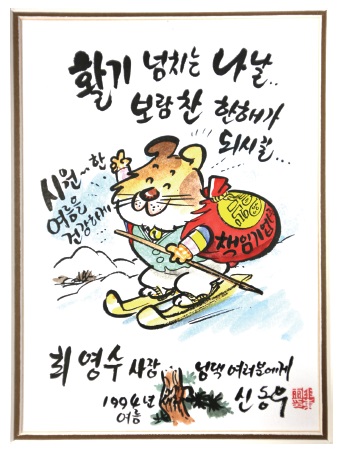 활기 넘치는 나날..
보람찬 한해가
되시길...
시원~한
여름을
건강하게
책임기업
최영수 사장 님댁 여러분에게
1994년 신동우
여름